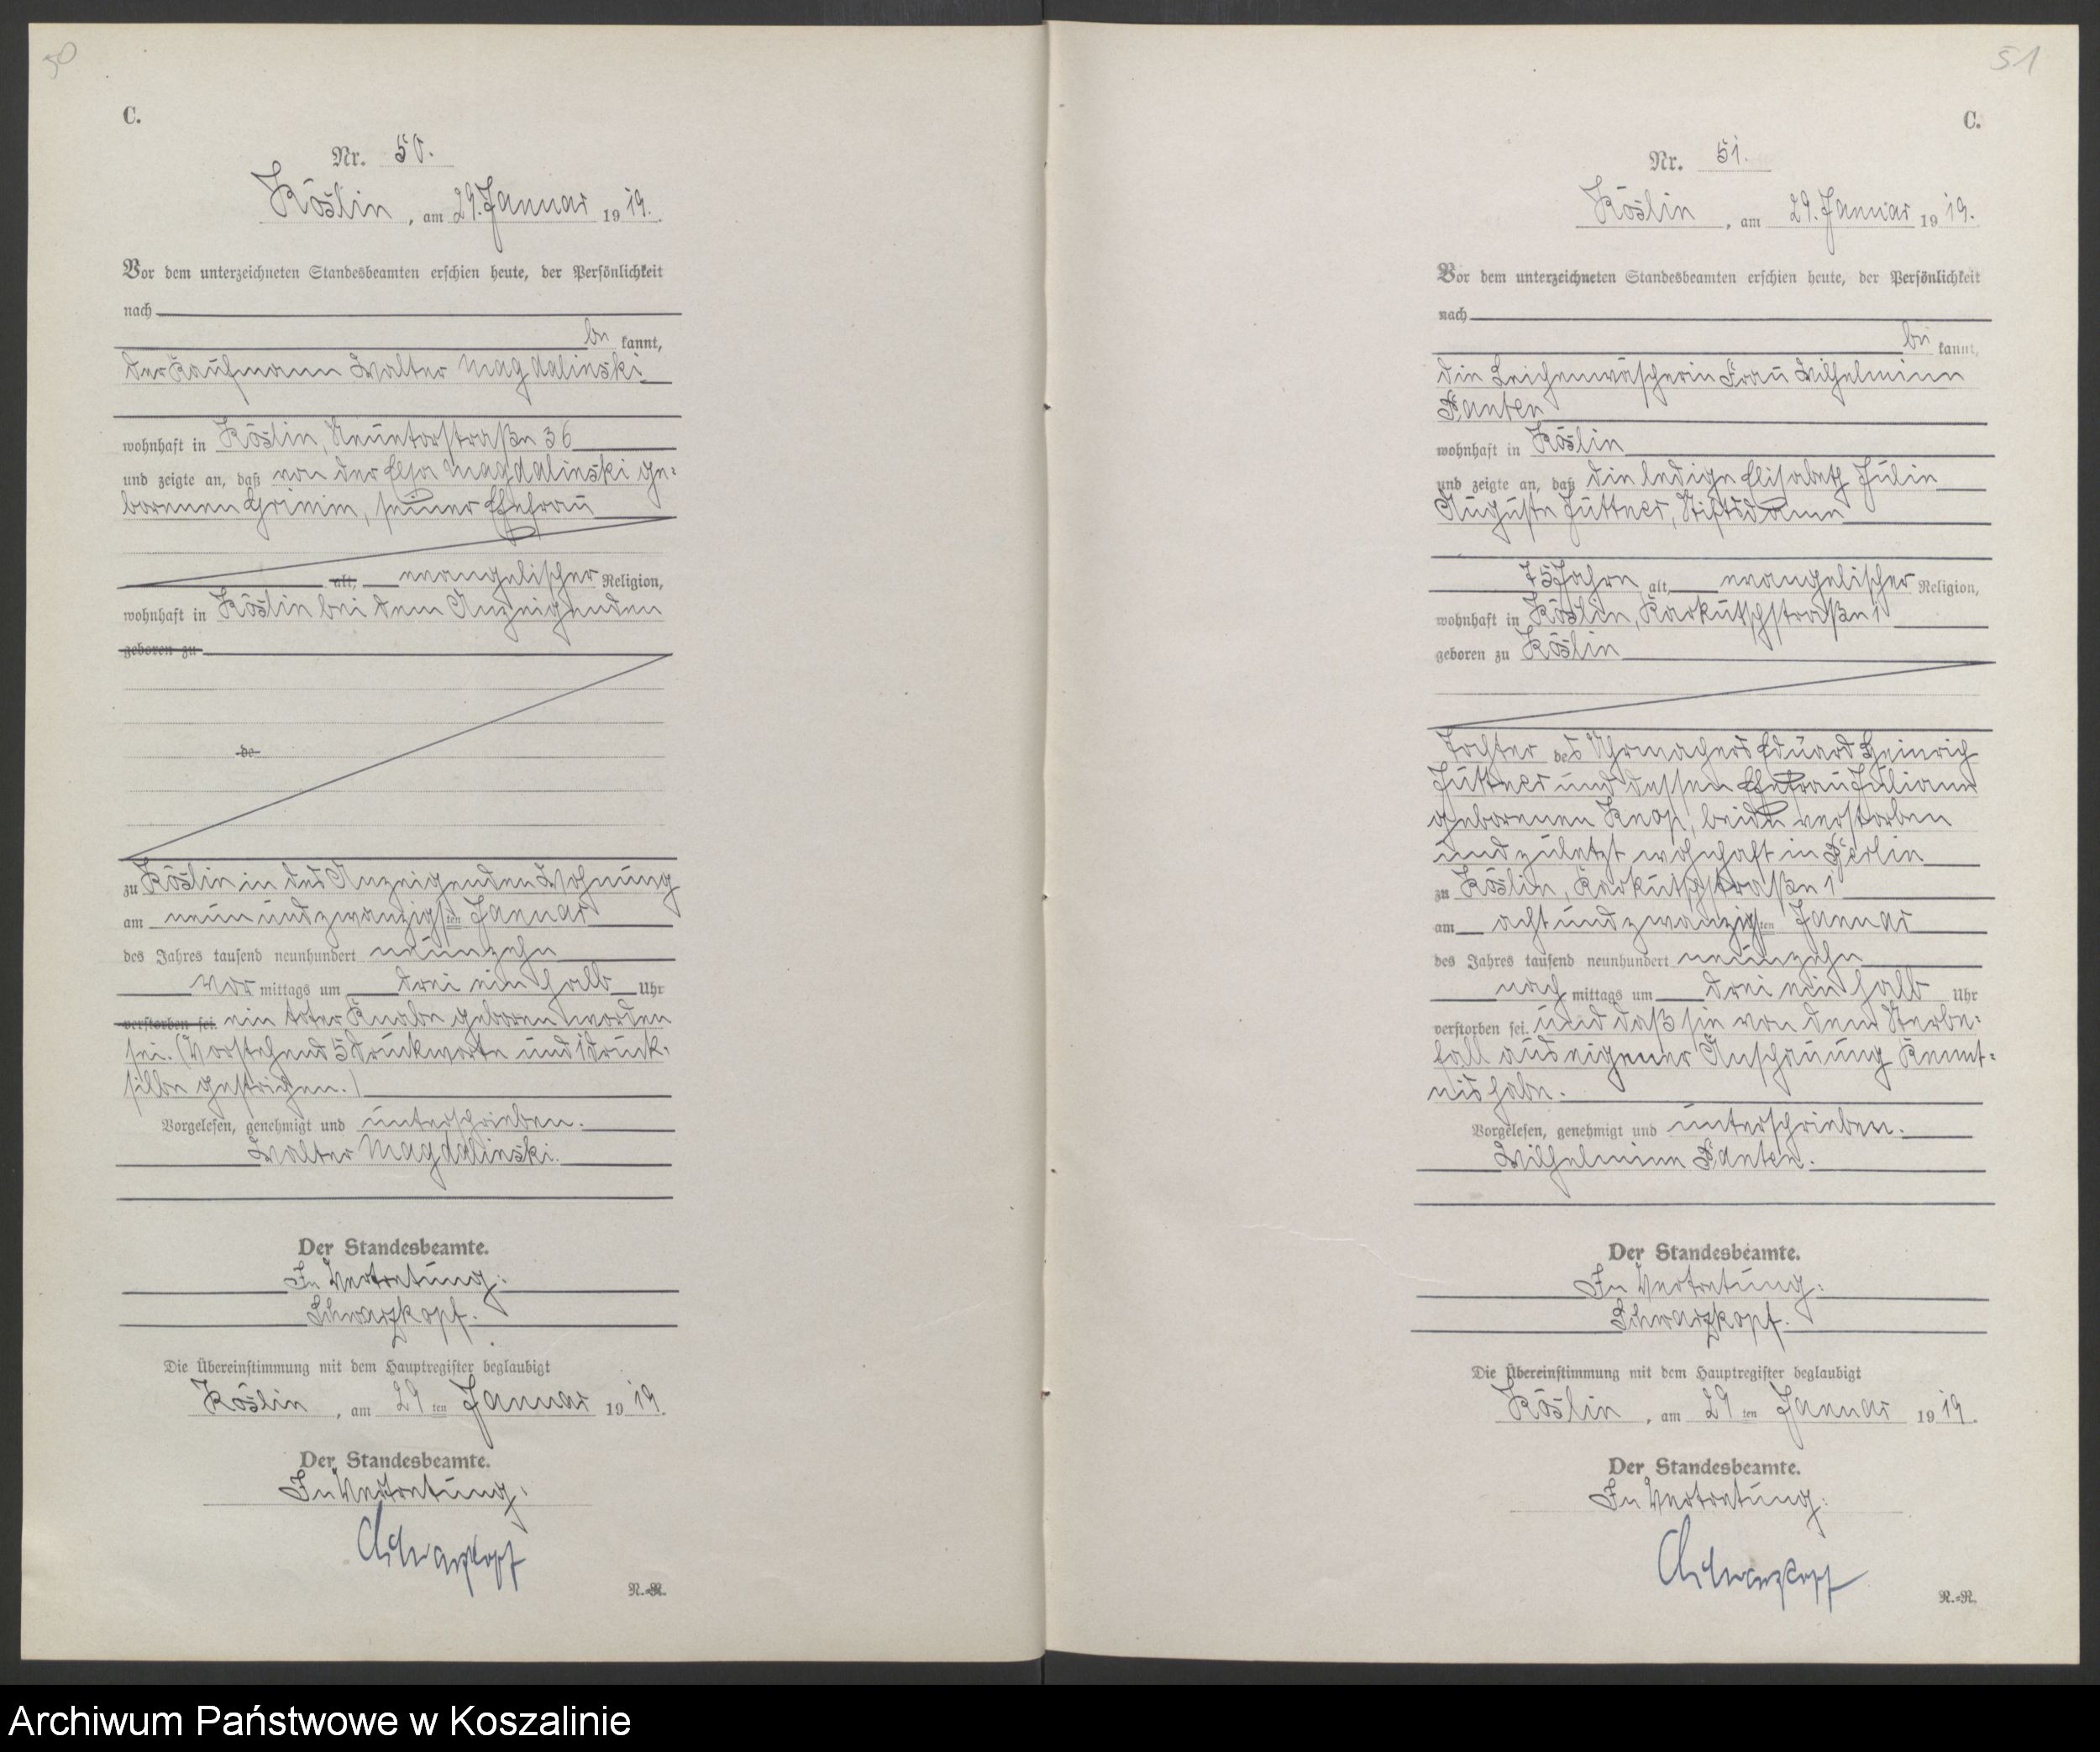 50
C.
Nr. 50.
Köslin, am 29. Januar 1919.
Vor dem unterzeichneten Standesbeamten erschien heute, der Persönlichkeit
nach
be kannt,
der Kaufmann Walter Magdalinski
wohnhaft in Köslin, Neuetorstraße 36
und zeigte an, daß von der Elsa Magdalinski ge-
borenen Grimm, seiner Ehefrau
alt, evangelischer Religion,
wohnhaft in Köslin bei dem Anzeigenden
geboren zu
de
zu Köslin in des Anzeigenden Wohnung
am neunundzwanzigsten Januar
des Jahres tausend neunhundert neunzehn
vor mittags um drei ein halb Uhr
verstorben sei ein toter Knabe geboren worden
sei. (Vorstehend 5 Druckworte und 1 Druck-
silbe gestrichen.)
Vorgelesen, genehmigt und unterschrieben.
Walter Magdalinski.
Der Standesbeamte.
In Vertretung:
Schwarzkopf.
Die Übereinstimmung mit dem Hauptregister beglaubigt
Köslin, am 29 ten Januar 1919.
Der Standesbeamte.
In Vertretung:
Schwarzkopf
R.-R.
51
C.
Nr. 51.
Köslin, am 29. Januar 1919.
Vor dem unterzeichneten Standesbeamten erschien heute, der Persönlichkeit
nach
be kannt,
die Leichenwäscherin Frau Wilhelmine
Panten
wohnhaft in Köslin
und zeigte an, daß die ledige Elisabeth Julie
Auguste Jüttner, Stiftsdame
75 Jahre alt, evangelischer Religion,
wohnhaft in Köslin, Karkutschstraße 1
geboren zu Köslin
Tochter des Uhrmachers Eduard Heinrich
Jüttner und dessen Ehefrau Juliane
geborenen Knop, beide verstorben
und zuletzt wohnhaft in Berlin
zu Köslin, Karkutschstraße 1
am achtundzwanzigsten Januar
des Jahres tausend neunhundert neunzehn
nach mittags um drei ein halb Uhr
verstorben sei und daß sie von dem Sterbe-
fall aus eigener Anschauung Kennt-
nis habe.
Vorgelesen, genehmigt und unterschrieben.
Wilhelmine Panten.
Der Standesbeamte.
In Vertretung:
Schwarzkopf.
Die Übereinstimmung mit dem Hauptregister beglaubigt
Köslin, am 29 ten Januar 1919.
Der Standesbeamte.
In Vertretung:
Schwarzkopf
R.-R.
Archiwum Państwowe w Koszalinie